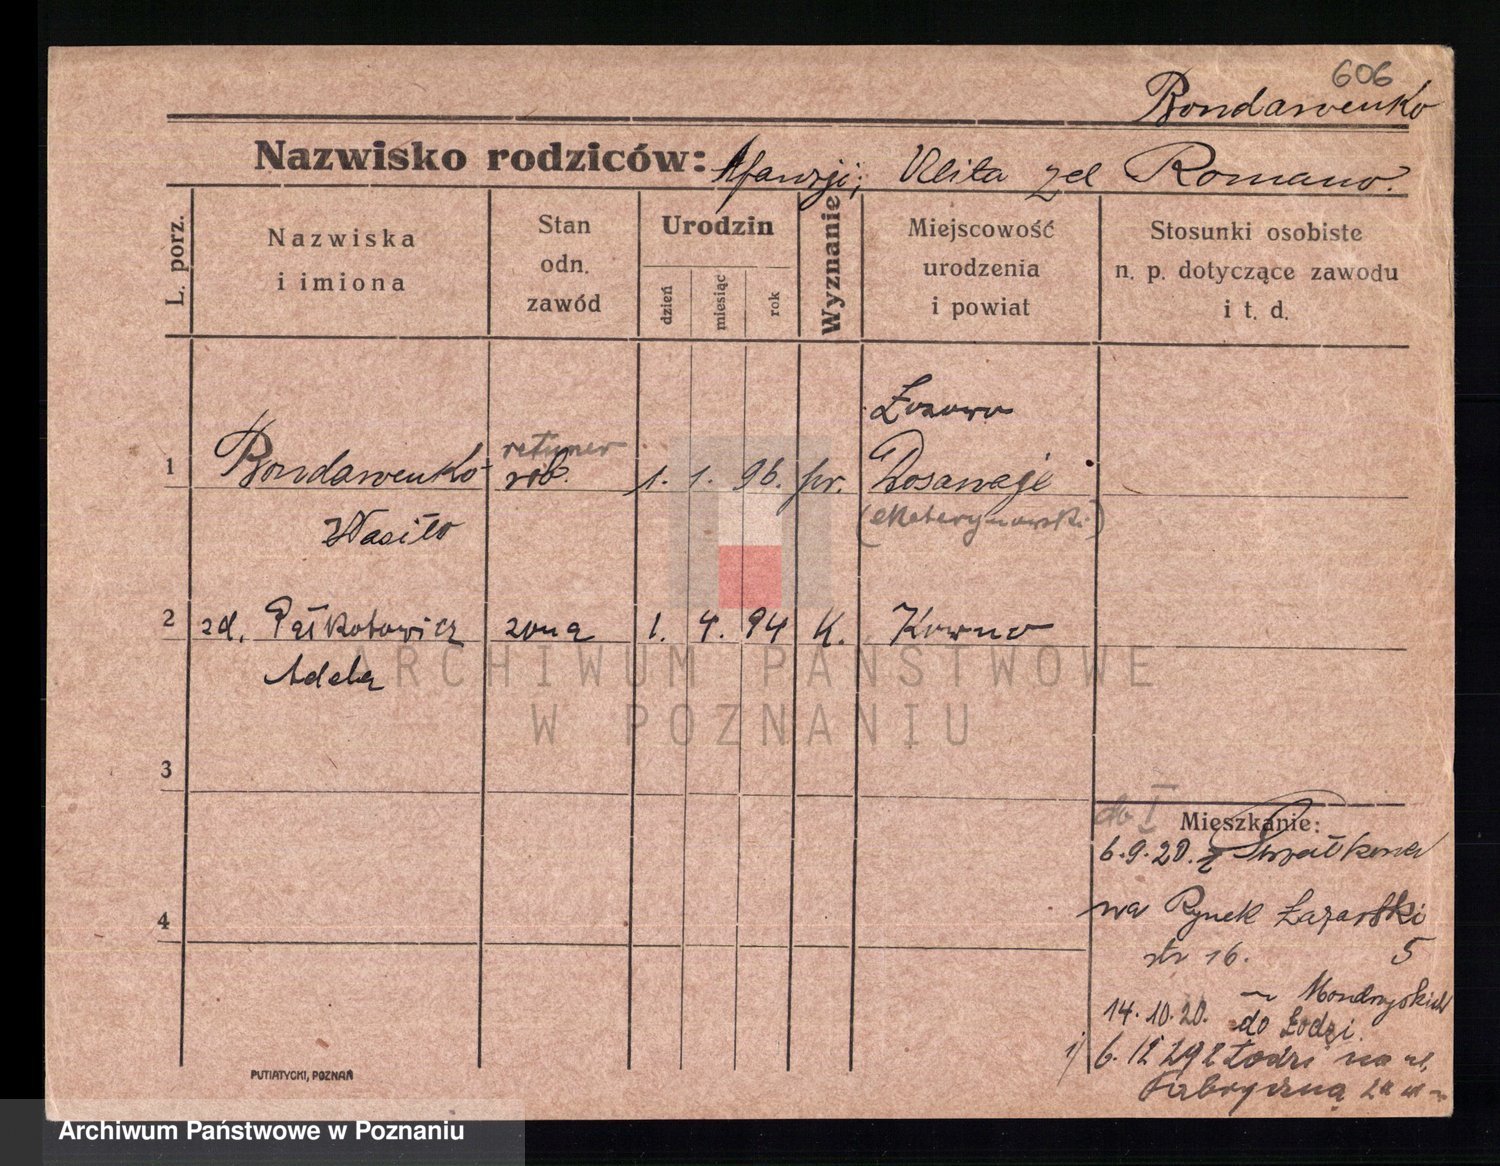 606
Bondarvenko
Nazwisko rodziców: Ulita zd Romano.
L. porz.
Nazwiska
i imiona
Stan
odn.
zawód
Urodzin
dzień
miesiąc
rok
Wyznanie
Miejscowość
urodzenia
i powiat
Stosunki osobiste
n. p. dotyczące zawodu
i t. d.
1 Bondarvenko rob. 1. 1. 96. pr.
Wasilo
2 zd. Pałkotowicz żona 1. 4. 94 K. Kowno
Adela
ARCHIWUM PAŃSTWOWE
W POZNANIU
3
do I Mieszkanie:
6.9.20. z
na Rynek Łazarski
4
str 16. 5
14.10.20.
do Łodzi.
1/ 6.12 29 z Łodzi na ul.
Fabryczną
PUTIATYCKI, POZNAŃ
Archiwum Państwowe w Poznaniu